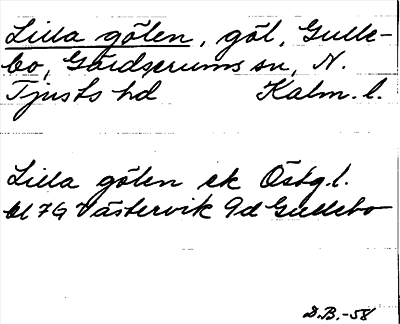 Lilla gölen, göl, Gulle-
bo, Gärdserums sn, N.
Tjusts hd Kalm. l.
Lilla gölen ek Östg. l.
bl 7G Västervik 9d Gullebo
D.B.-58